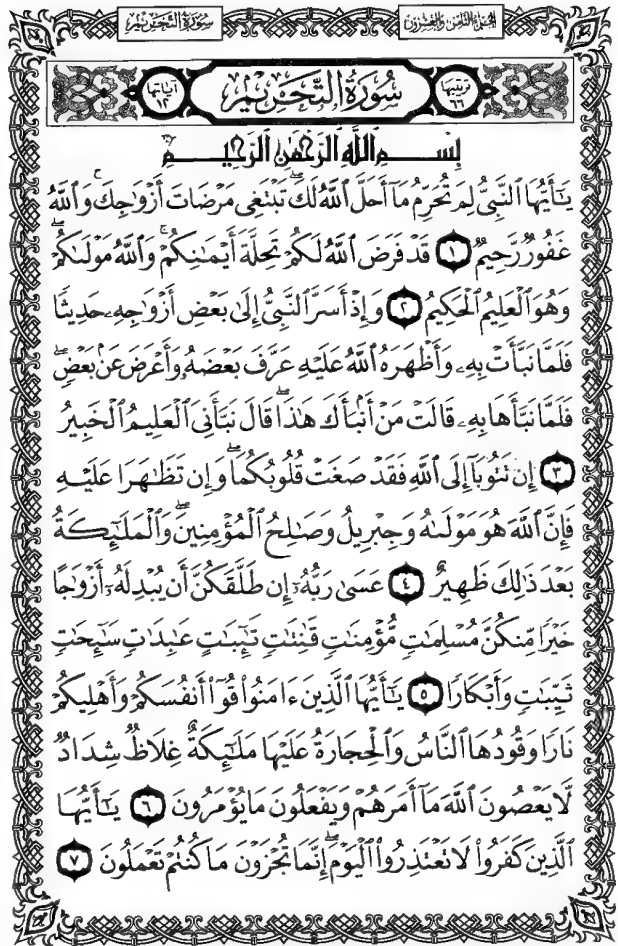 سُورَةُ التَّحۡرِيمِ
الجزء الثامن والعشرون
ترتيبها ٦٦
سُورَةُ التَّحۡرِيمِ
آياتها ١٢
بِسۡمِ ٱللَّهِ ٱلرَّحۡمَٰنِ ٱلرَّحِيمِ
يَٰٓأَيُّهَا ٱلنَّبِيُّ لِمَ تُحَرِّمُ مَآ أَحَلَّ ٱللَّهُ لَكَۖ تَبۡتَغِي مَرۡضَاتَ أَزۡوَٰجِكَۚ وَٱللَّهُ
غَفُورٞ رَّحِيمٞ ١ قَدۡ فَرَضَ ٱللَّهُ لَكُمۡ تَحِلَّةَ أَيۡمَٰنِكُمۡۚ وَٱللَّهُ مَوۡلَىٰكُمۡۖ
وَهُوَ ٱلۡعَلِيمُ ٱلۡحَكِيمُ ٢ وَإِذۡ أَسَرَّ ٱلنَّبِيُّ إِلَىٰ بَعۡضِ أَزۡوَٰجِهِۦ حَدِيثٗا
فَلَمَّا نَبَّأَتۡ بِهِۦ وَأَظۡهَرَهُ ٱللَّهُ عَلَيۡهِ عَرَّفَ بَعۡضَهُۥ وَأَعۡرَضَ عَنۢ بَعۡضٖۖ
فَلَمَّا نَبَّأَهَا بِهِۦ قَالَتۡ مَنۡ أَنۢبَأَكَ هَٰذَاۖ قَالَ نَبَّأَنِيَ ٱلۡعَلِيمُ ٱلۡخَبِيرُ
٣ إِن تَتُوبَآ إِلَى ٱللَّهِ فَقَدۡ صَغَتۡ قُلُوبُكُمَاۖ وَإِن تَظَٰهَرَا عَلَيۡهِ
فَإِنَّ ٱللَّهَ هُوَ مَوۡلَىٰهُ وَجِبۡرِيلُ وَصَٰلِحُ ٱلۡمُؤۡمِنِينَۖ وَٱلۡمَلَٰٓئِكَةُ
بَعۡدَ ذَٰلِكَ ظَهِيرٌ ٤ عَسَىٰ رَبُّهُۥٓ إِن طَلَّقَكُنَّ أَن يُبۡدِلَهُۥٓ أَزۡوَٰجًا
خَيۡرٗا مِّنكُنَّ مُسۡلِمَٰتٖ مُّؤۡمِنَٰتٖ قَٰنِتَٰتٖ تَٰٓئِبَٰتٍ عَٰبِدَٰتٖ سَٰٓئِحَٰتٖ
ثَيِّبَٰتٖ وَأَبۡكَارٗا ٥ يَٰٓأَيُّهَا ٱلَّذِينَ ءَامَنُواْ قُوٓاْ أَنفُسَكُمۡ وَأَهۡلِيكُمۡ
نَارٗا وَقُودُهَا ٱلنَّاسُ وَٱلۡحِجَارَةُ عَلَيۡهَا مَلَٰٓئِكَةٌ غِلَاظٞ شِدَادٞ
لَّا يَعۡصُونَ ٱللَّهَ مَآ أَمَرَهُمۡ وَيَفۡعَلُونَ مَا يُؤۡمَرُونَ ٦ يَٰٓأَيُّهَا
ٱلَّذِينَ كَفَرُواْ لَا تَعۡتَذِرُواْ ٱلۡيَوۡمَۖ إِنَّمَا تُجۡزَوۡنَ مَا كُنتُمۡ تَعۡمَلُونَ ٧